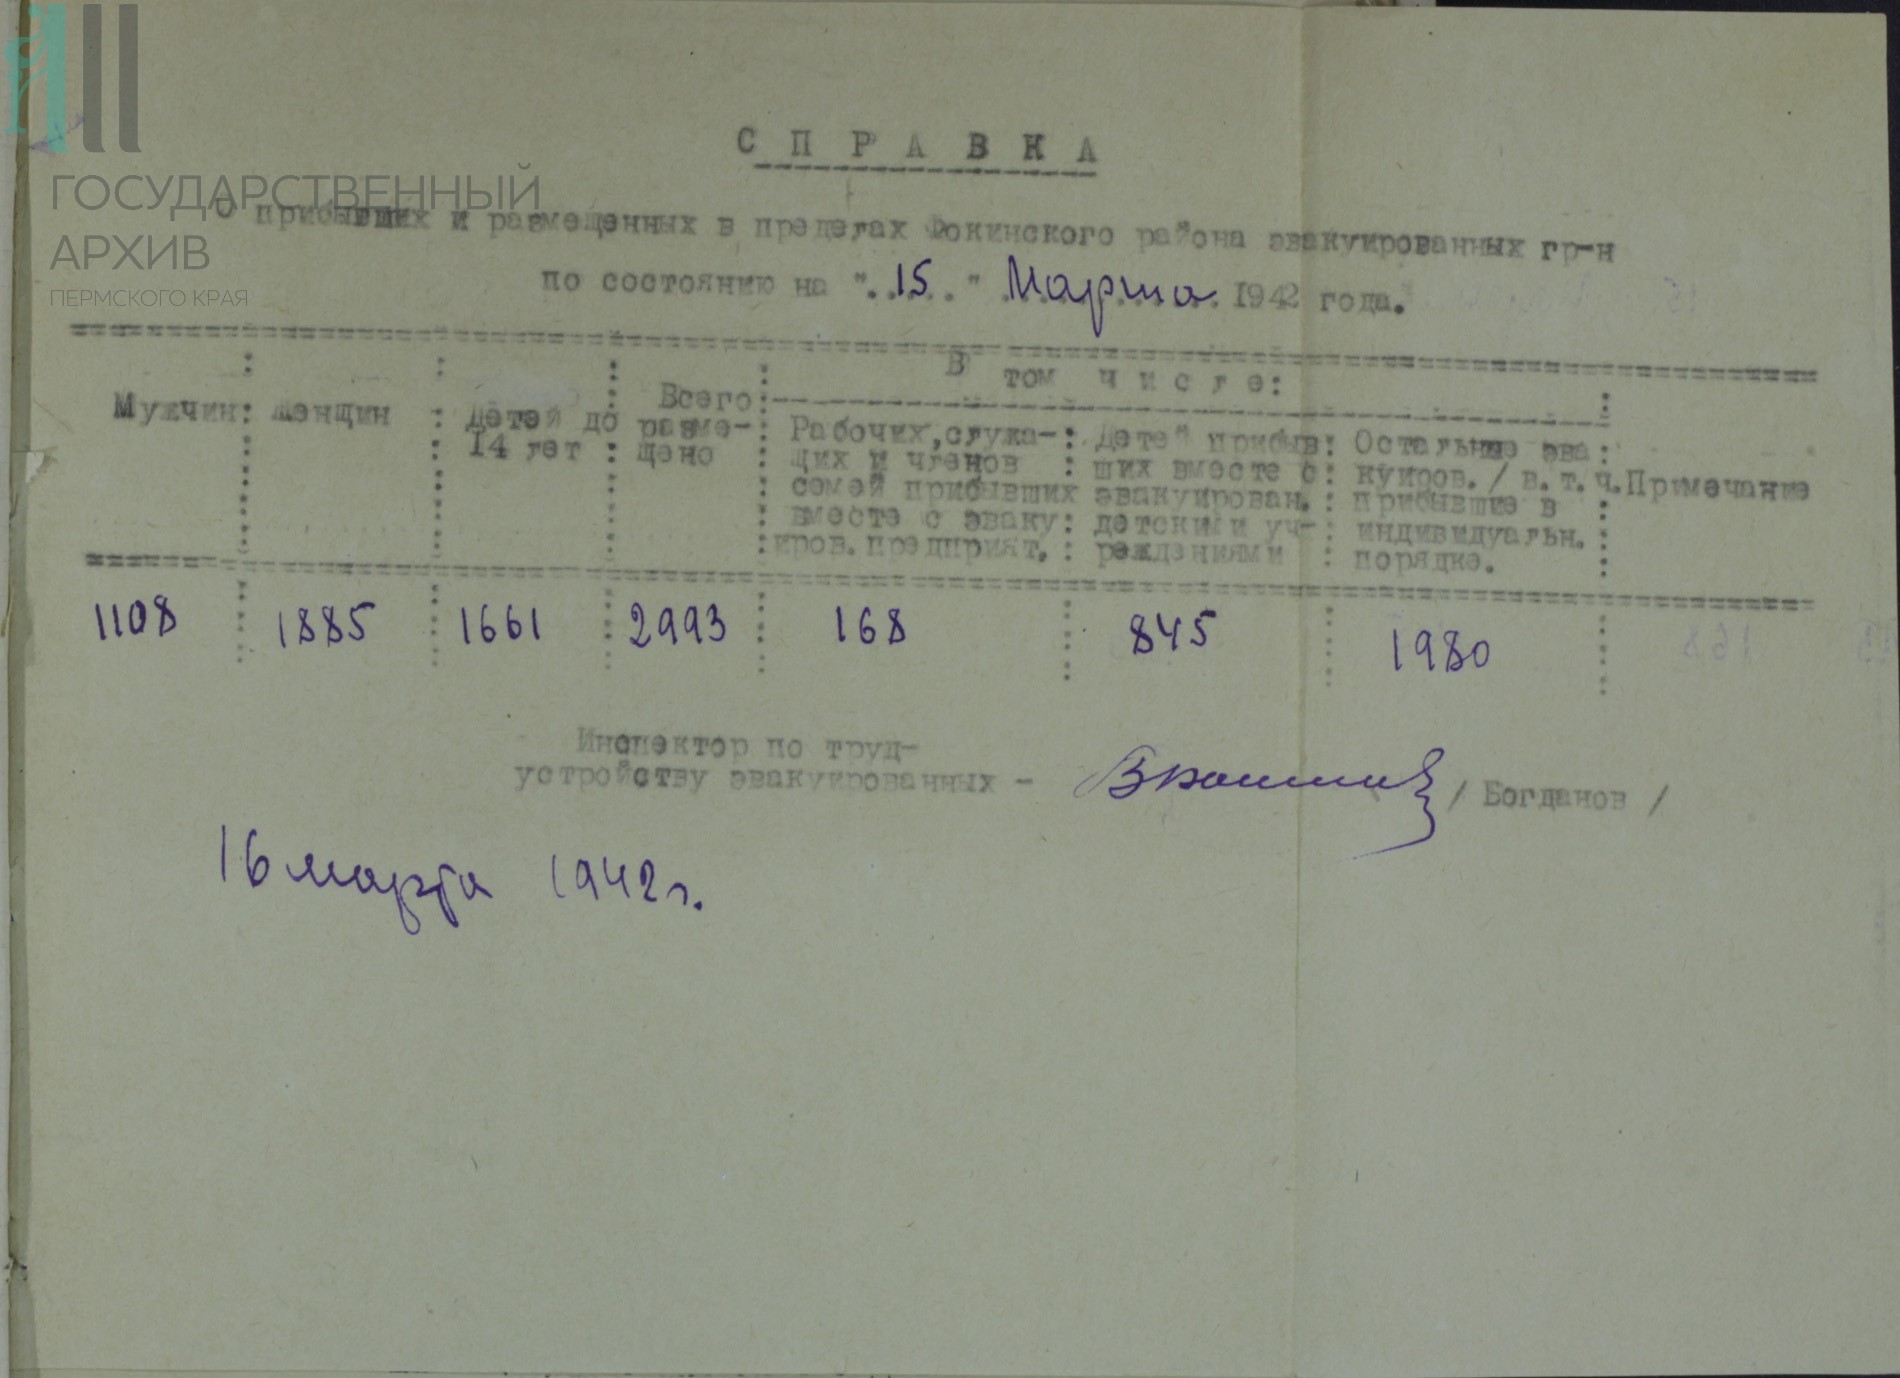 ГОСУДАРСТВЕННЫЙ
АРХИВ
ПЕРМСКОГО КРАЯ
С П Р А В К А
О прибывших и размещенных в пределах Фокинского района эвакуированных гр-н
по состоянию на "15" Марта 1942 года.
В том числе:
Мужчин
Женщин
Детей до
14 лет
Всего
разме-
щено
Рабочих, служа-
щих и членов
семей прибывших
вместе с эваку
иров. предприят.
Детей прибыв
ших вместе с
эвакуирован.
детскими уч-
реждениями
Остальные эва
куиров. / в. т. ч.
прибывшие в
индивидуальн.
порядке.
Примечание
1108 1885 1661 2993 168 845 1980
Инспектор по труд-
устройству эвакуированных - / Богданов /
16 марта 1942 г.